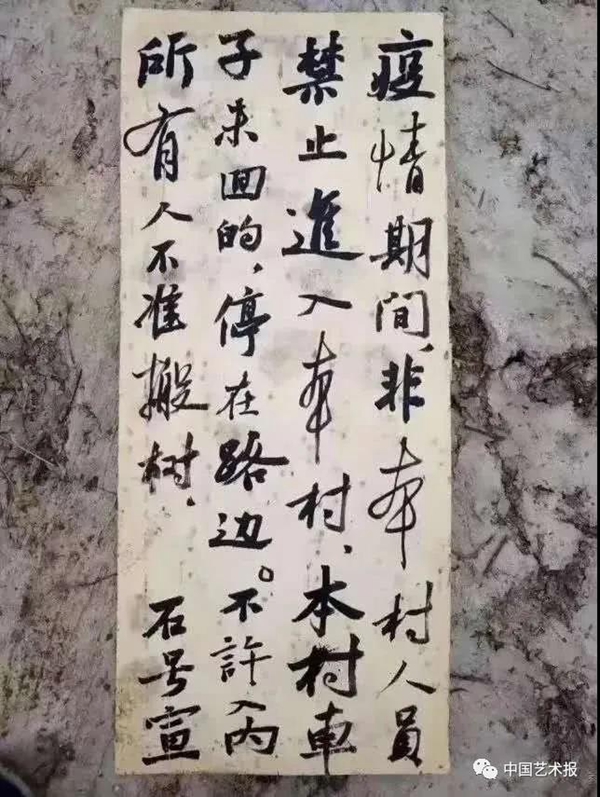 疫情期间、非本村人员
禁止進入本村、本村車
子未回的,停在路边。不許入内
所有人不准搬树. 石号宣
中国艺术报